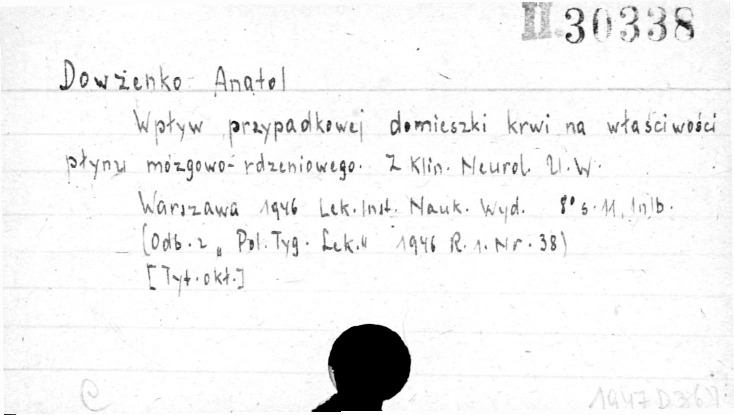 II 30338
Dowżenko Anatol
Wpływ przypadkowej domieszki krwi na właściwości
płynu mózgowo-rdzeniowego. Z Klin. Neurol. U.W.
Warszawa 1946 Lek. Inst. Nauk. Wyd. 8° s. 11, 1nlb.
(Odb. z „Pol. Tyg. Lek." 1946 R. 1. Nr. 38)
[Tyt. okł.]
C